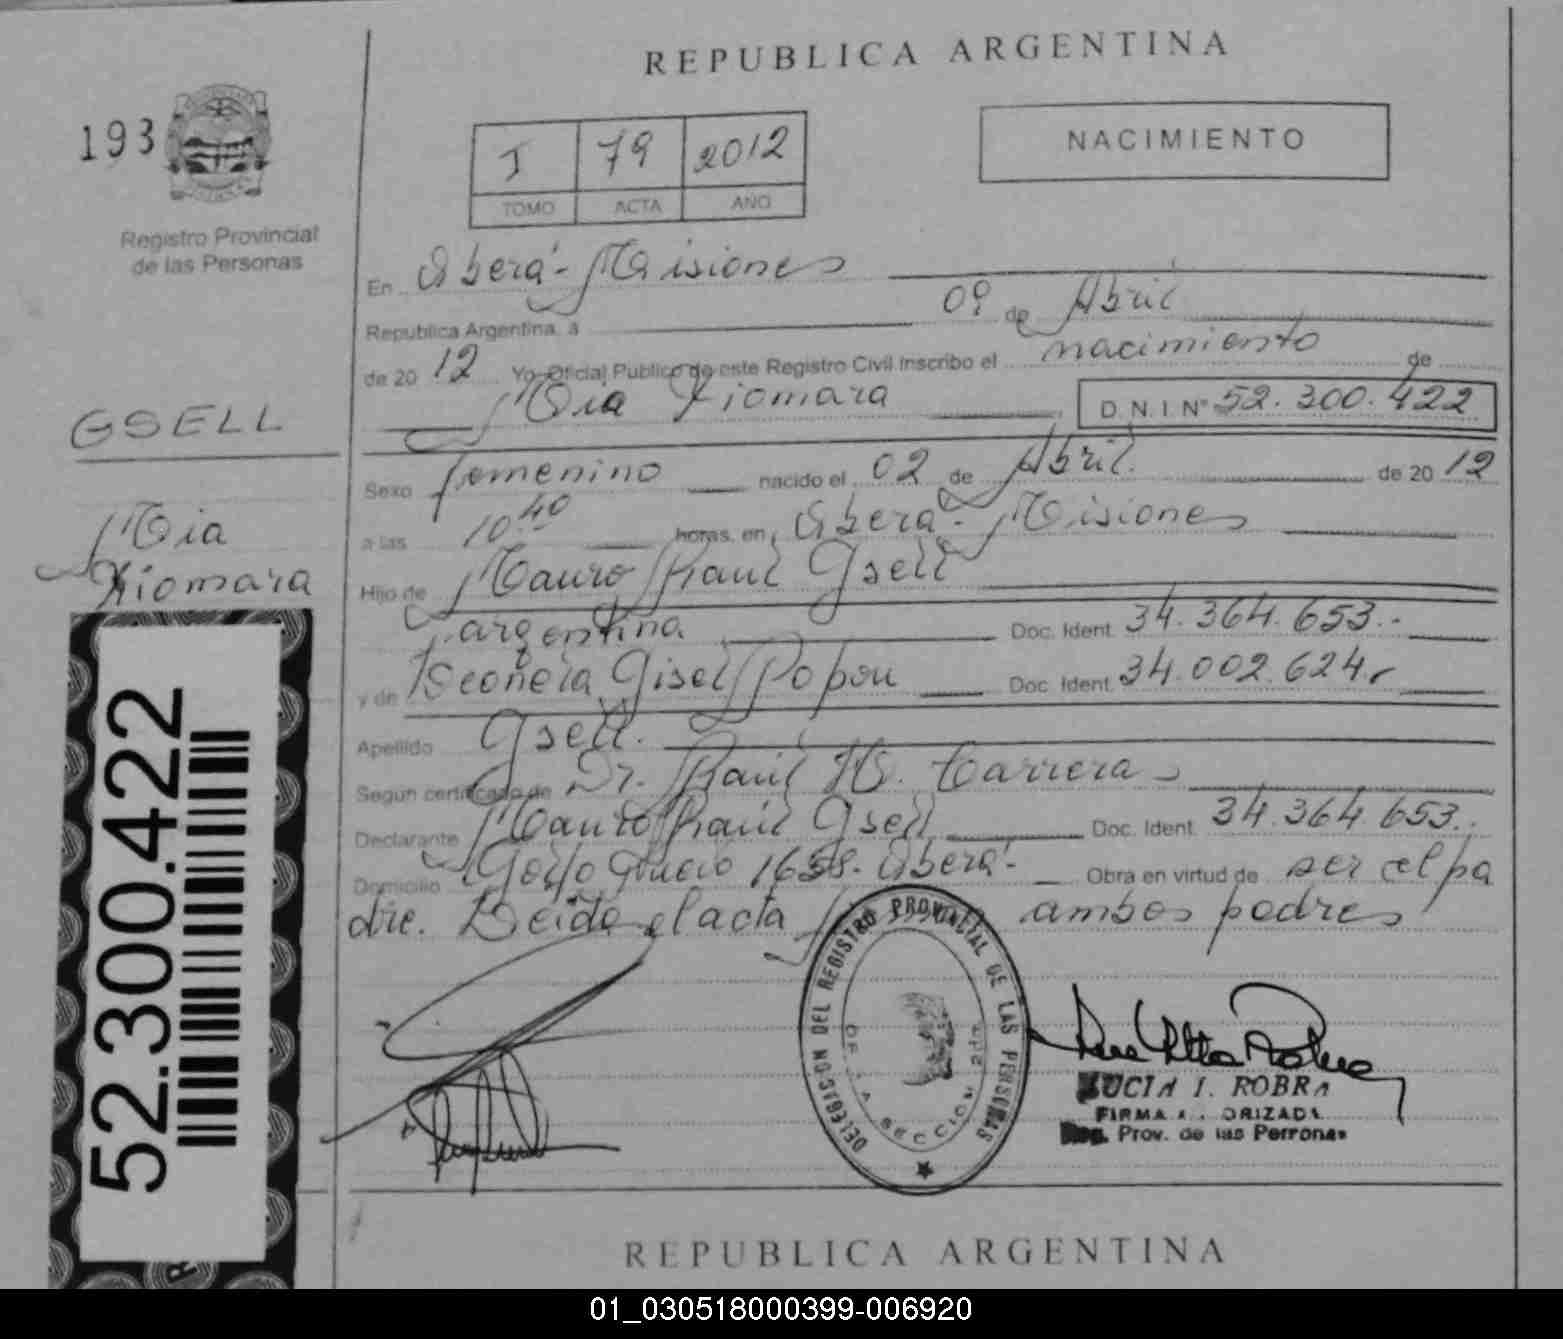 REPUBLICA ARGENTINA
193
I 79 2012
TOMO ACTA AÑO
NACIMIENTO
Registro Provincial
de las Personas
En Oberá - Misiones
Republica Argentina, a 09 de Abril
de 20 12 Yo Oficial Publico de este Registro Civil Inscribo el nacimiento de
Mia Xiomara D. N. I. N° 52.300.422
GSELL
Mia
Xiomara
Sexo femenino nacido el 02 de Abril de 20 12
a las 10:40 horas, en Oberá - Misiones
Hijo de Mauro Raúl Gsell
argentina Doc. Ident. 34.364.653.-
y de Gisel Popou Doc. Ident. 34.002.624.-
Apellido Gsell.
Segun certificado de Dr. Raúl H. Carrera
Declarante Mauro Raúl Gsell Doc. Ident. 34.364.653.
Domicilio 1658. Oberá - Obra en virtud de ser el pa
dre. Leída el acta ambos padres
52.300.422
DELEGACION DEL REGISTRO PROVINCIAL DE LAS PERSONAS
DE LA SECCION 2da
LUCIA I. ROBRA
FIRMA AUTORIZADA
Reg. Prov. de las Personas
REPUBLICA ARGENTINA
01_030518000399-006920